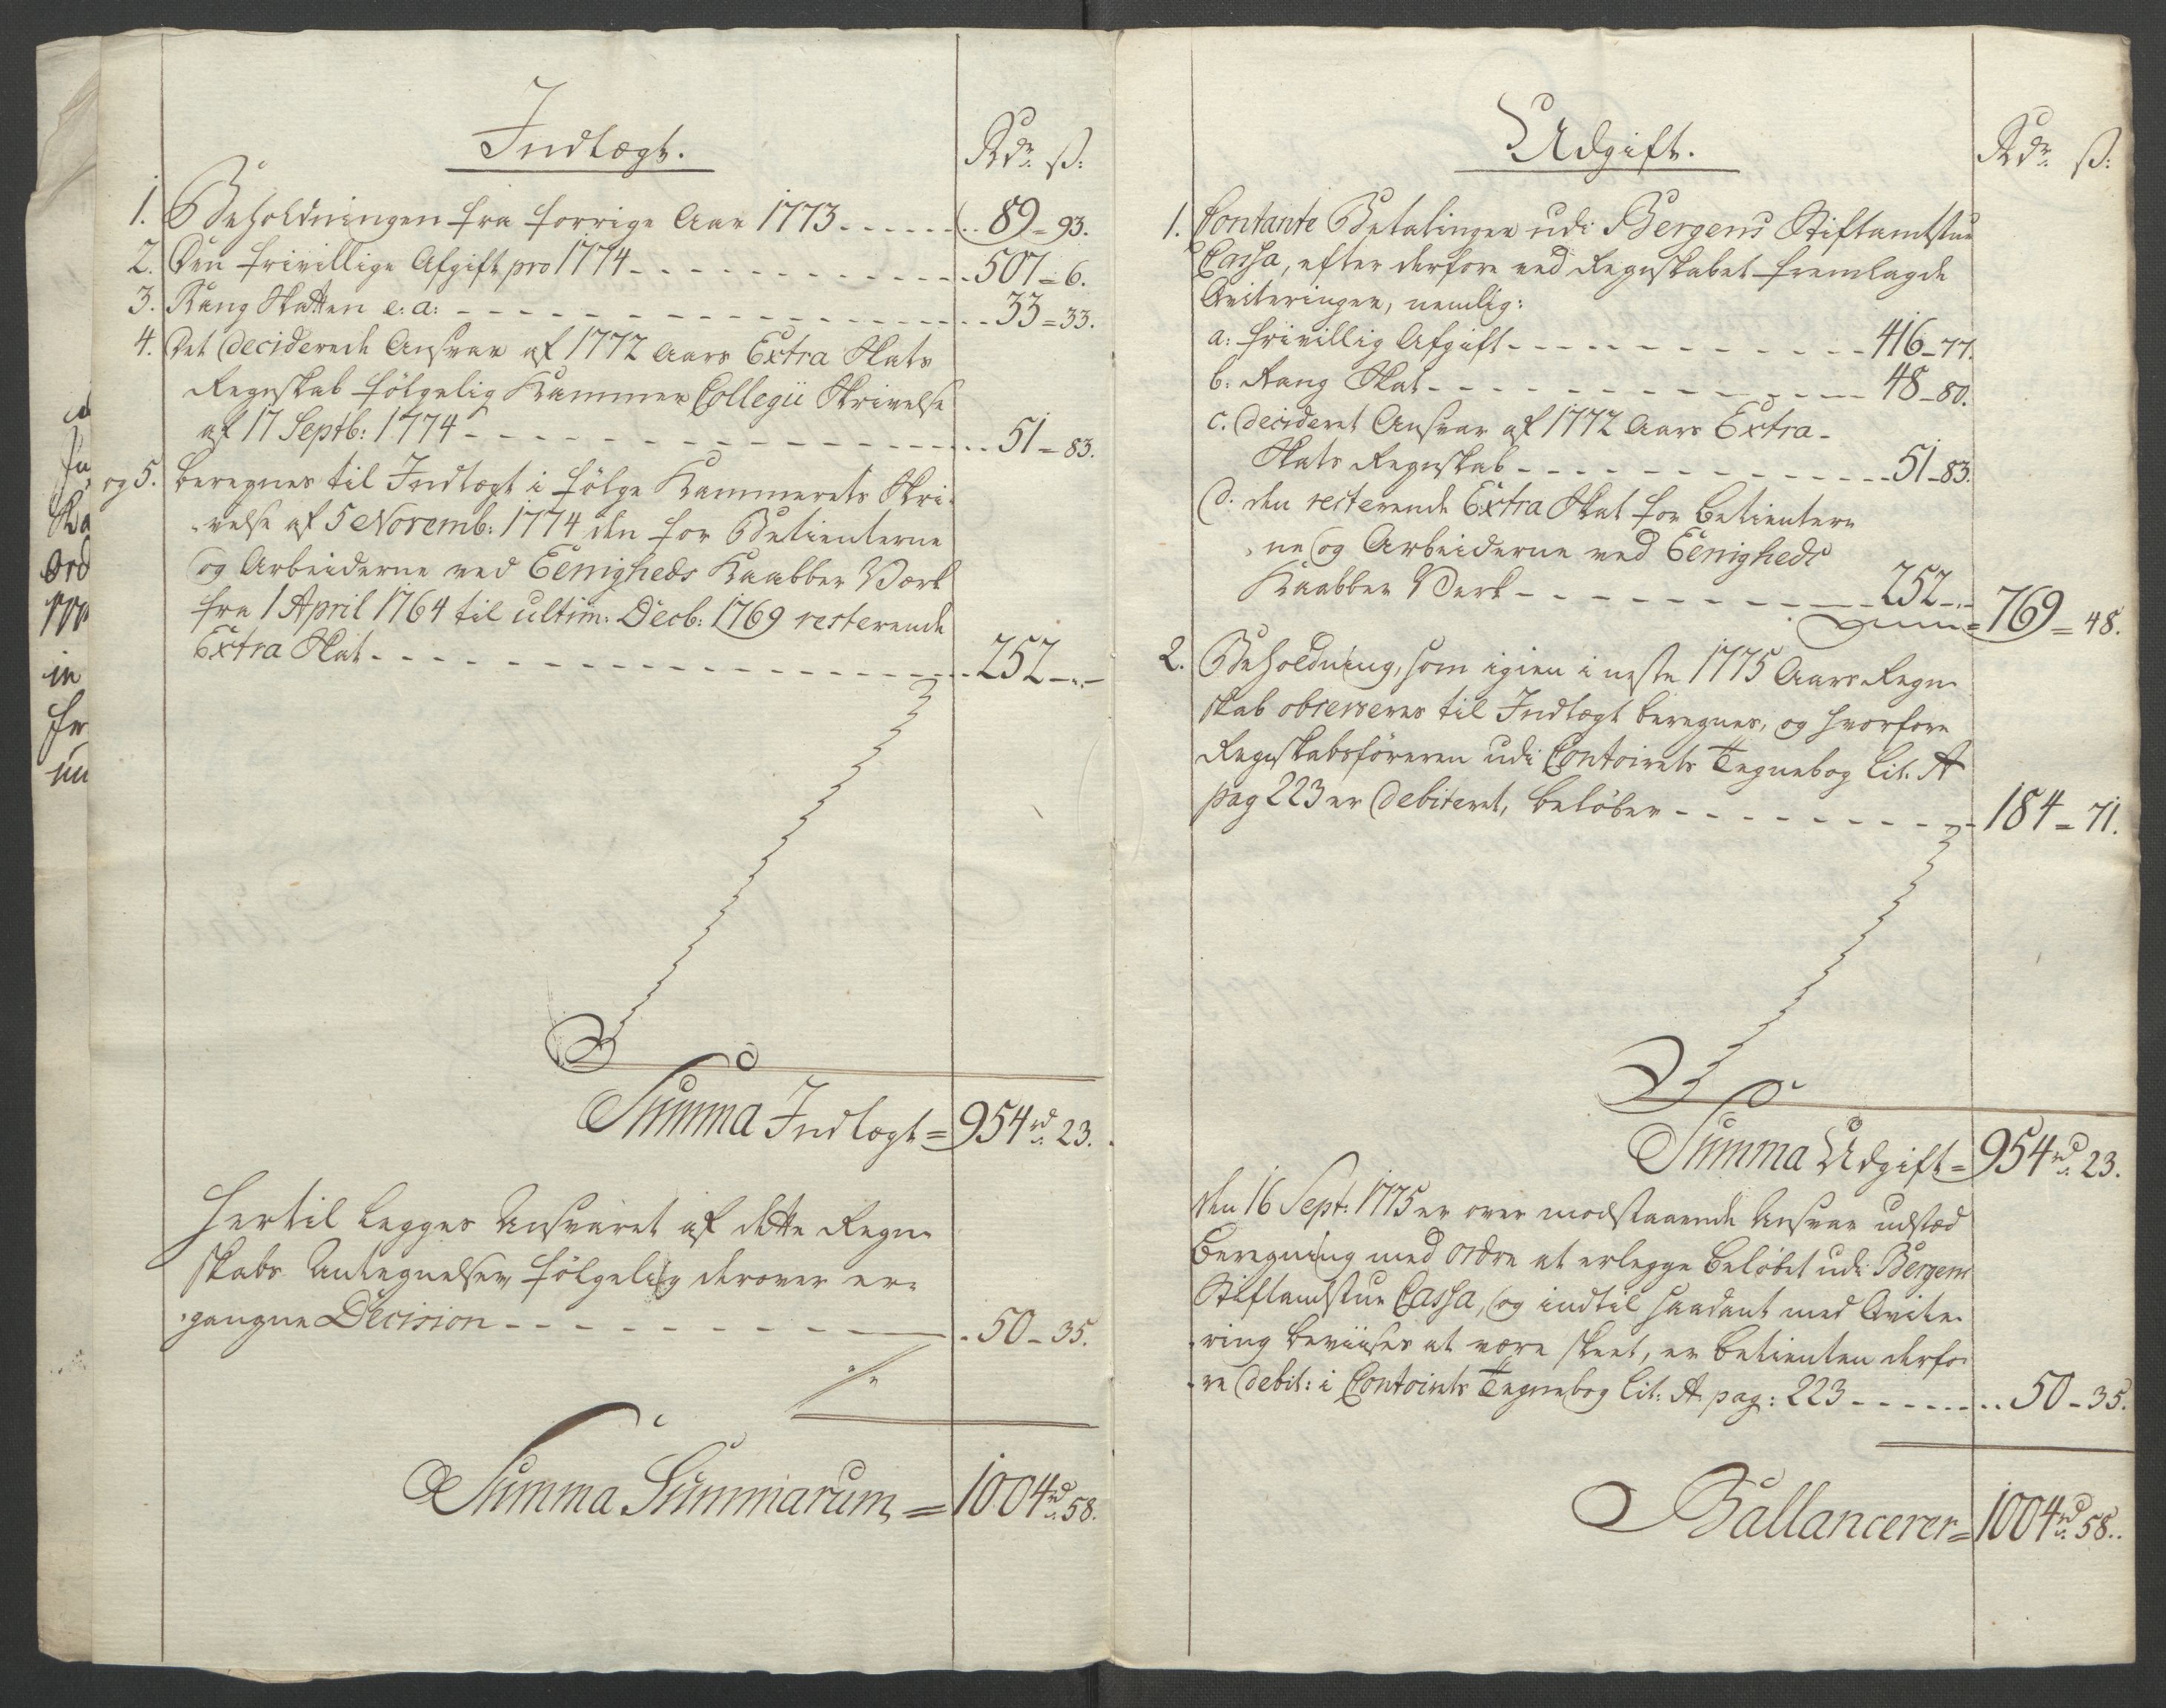 Indtægt.
Rdr. ß:
1. Beholdningen fra forrige Aar 1773 89 = 93.
2. Den frivillige Afgift pro 1774 507 = 6.
3. Rang Skatten e: a: 33 = 33.
4. Det deciderede Ansvar af 1772 Aars Extra Skats
Regnskab følgelig Kammer Collegii Skrivelse
af 17 Septb: 1774 51 = 83.
og 5. beregnes til Indtægt i følge Kammerets Skri-
velse af 5 Novemb: 1774 den for Betienterne
og Arbeiderne ved Eenigheds Kaabber Værk
fra 1 April 1764 til ultim: Decb: 1769 resterende
Extra Skat 252 -"-
Summa Indtægt = 954 rd 23.
Hertil legges Ansvaret af dette Regn-
skabs Antegnelser følgelig derover er-
gangne Decision 50 - 35.
Summa Summarum = 1004 rd 58.
Udgift.
Rdr. ß:
1. Contante Betalinger udi Bergens Stiftamtstue
Cassa, efter derfore ved Regnskabet fremlagde
Qviteringer, nemlig:
a: frivillig Afgift 416 - 77.
b: Rang Skat 48 - 80.
c. decideret Ansvar af 1772 Aars Extra-
Skats Regnskab 51 - 83.
d. den resterende Extra Skat for betientere
ne og Arbeiderne ved Eenigheds
Kaabber Verk 252 -"-
769 = 48.
2. Beholdning, som igien i neste 1775 Aars Regn-
skab observeres til Indtægt beregnes, og hvorfore
Regnskabsføreren udi Contoirets Tegnebog Lit. A
pag 223 er debiteret, beløber 184 = 71.
Summa Udgift = 954 rd 23.
den 16 Sept: 1775 er over modstaaende Ansvar udstæd
Beregning med Ordre at erlegge beløbet udi Bergens
Stiftamtstue Cassa, og indtil saadant med Qvite-
ring beviises at være skeet, er betienten derfo-
re debit: i Contoirets Tegnebog Lit: A pag: 223 50 - 35.
Ballancerer = 1004 rd 58.